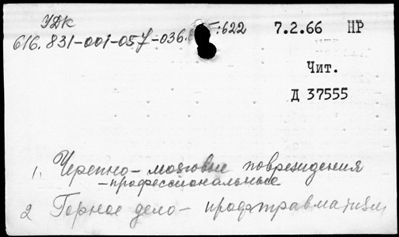 УДК
616.831-001-057-036. :622 7.2.66 НР
Чит.
Д 37555
1. Черепно-мозговые повреждения
-профессиональные
2 Горное дело- профтравматизм